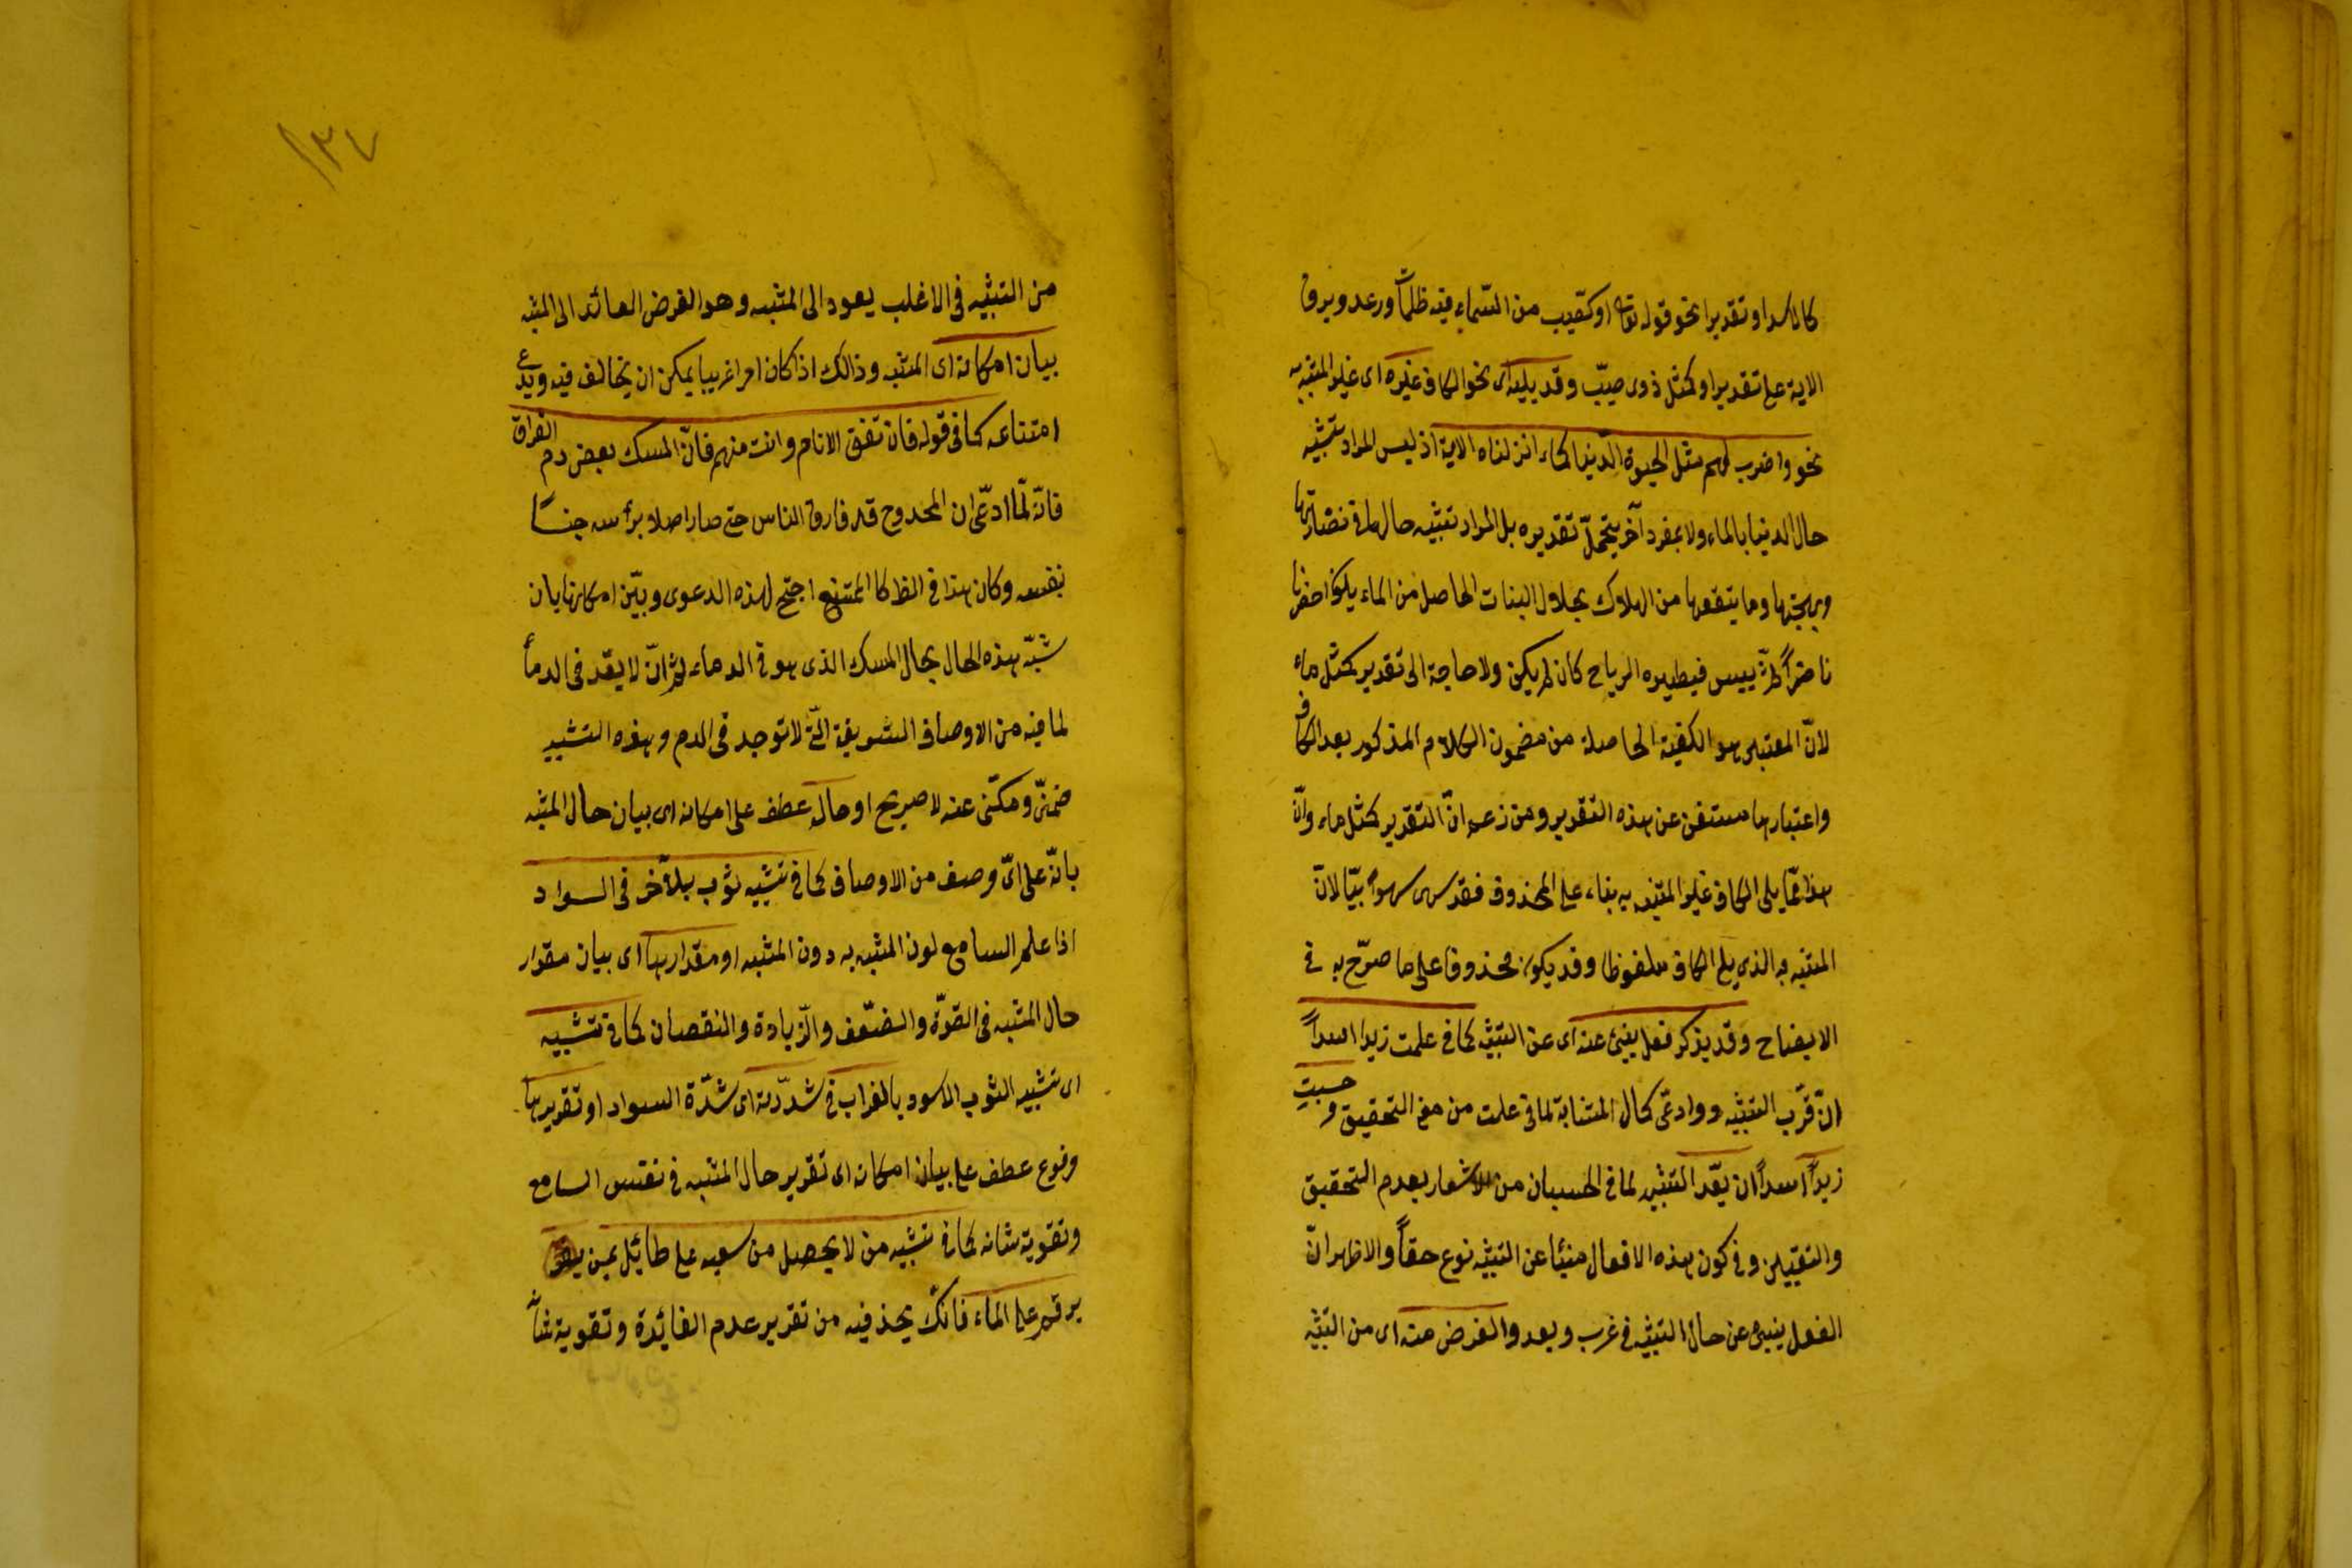 كالاسد او تقديرا نحو قوله تعالى او كصيّب من السّماء فيه ظلمات ورعد وبرق
الاية على تقدير او كمثل ذوى صيّب وقد يليه اى نحو الكاف غيره اى غير المشبه به
نحو واضرب لهم مثل الحيوة الدّنيا كماء انزلناه الاية اذ ليس المراد تشبيه
حال الدنيا بالماء ولا بمفرد آخر يتحمّل تقديره بل المراد تشبيه حالها فى نضارتها
وبهجتها وما يتعقبها من الهلاك بحال النبات الحاصل من الماء يكون اخضر
ناضراً ثمّ ييبس فيطيره الرياح كان لم يكن ولا حاجة الى تقدير كمثل ماء
لانّ المعتبر هو الكيفية الحاصلة من مضمون الكلام المذكور بعد الكاف
واعتبارها مستغن عن هذه التقدير ومن زعم انّ التقدير كمثل ماء وانّ
هذا ممّا يلى الكاف غير المشبه به بناء على المحذوف فقد سهى سهواً بيّنا لانّ
المشبه به الذى يلى الكاف ملفوظا وقد يكون محذوفا على ما صرّح به فى
الايضاح وقد يذكر فعل ينبئ عنه اى عن التشبيه كما فى علمت زيدا اسداً
انّ قرّب التشبيه و وادعّى كمال المشابهة لما فى علمت من معنى التحقيق و حسبت
زيداً اسداً ان بعّد التشبيه لما فى الحسبان من الاشعار بعدم التحقيق
والتيقن وفى كون هذه الافعال منبئا عن التشبيه نوع خفاً والاظهر انّ
الفعل ينبئ عن حال التشبيه فى قرب وبعد والغرض منه اى من التشبيه
١٣٤
من التشبيه فى الاغلب يعود الى المشبه وهو الغرض العائد الى المشبه
بيان امكانه اى المشبه وذالك اذا كان امرا غريبا يمكن ان يخالف فيه ويدعى
امتناعه كما فى قوله فان تفق الانام وانت منهم فانّ المسك بعض دم الغزال
فانّه لمّا ادّعى ان الممدوح قد فارق الناس حتى صار اصلا برأسه جنساً
بنفسه وكان هذا فى الظ كا الممتنع احتج لهذه الدعوى وبيّن امكانها بان
شبّه هذه الحال بحال المسك الذى هو فى الدماء ثم انّه لا يعّد فى الدماء
لما فيه من الاوصاف الشريفة الّتى لا توجد فى الدم وهذه التشبيه
ضمنىّ ومكنّى عنه لا صريح او حاله عطف على امكانه اى بيان حال المشبه
بانّه على اىّ وصف من الاوصاف كما فى تشبيه ثوب بآخر فى السواد
اذا علم السامع لون المشبه به دون المشبه او مقدارها اى بيان مقدار
حال المشبه فى القوّة والضعّف والزّيادة والنقصان كما فى تشبيه
اى تشبيه الثوب الاسود بالغراب فى شدّته اى شدّة السواد او تقريرها
مرفوع عطف على بيان امكانه اى تقرير حال المشبه فى نفس السامع
وتقوية شانه كما فى تشبيه من لا يحصل من سعيه على طائل بمن
يرقم على الماء فانّك تجد فيه من تقرير عدم الفائدة وتقوية شأنه